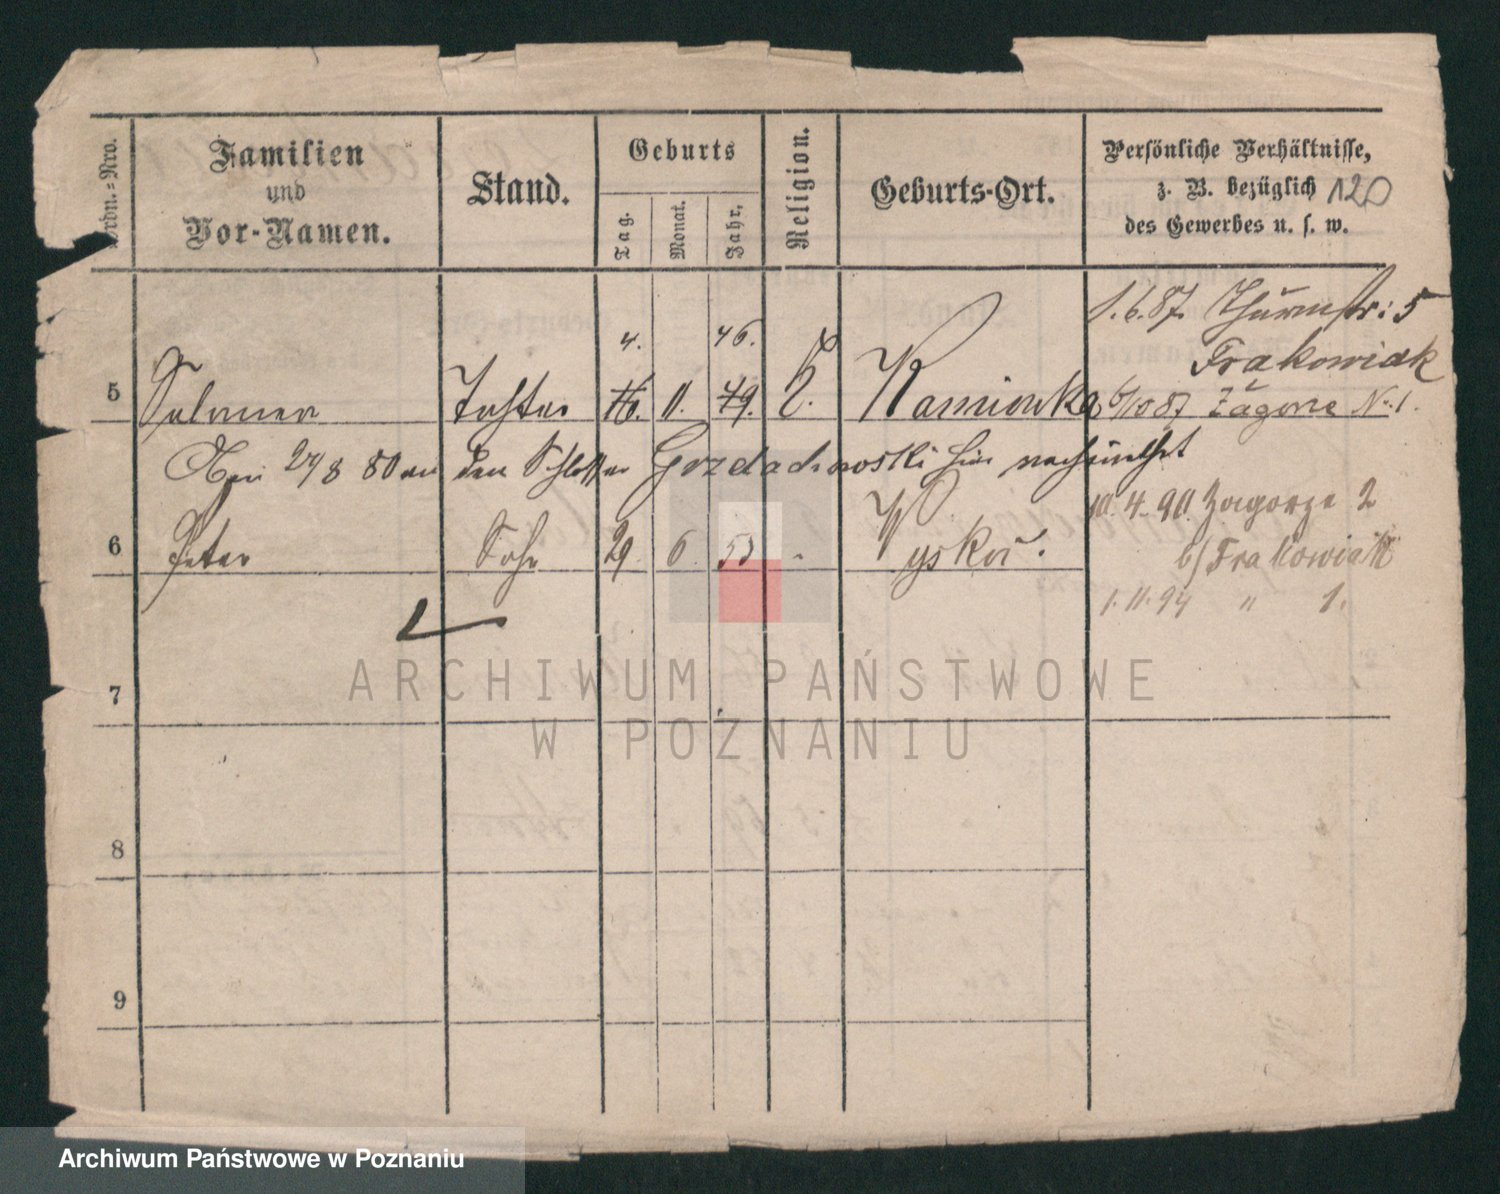 Ordn.=Nro.
Familien
und
Vor-Namen.
Stand.
Geburts
Tag.
Monat.
Jahr.
Religion.
Geburts-Ort.
Persönliche Verhältnisse,
z. B. bezüglich 120
des Gewerbes u. s. w.
1.6.87. Thurmstr: 5
4. 46.
Frakowiak
5 Tochter 16. 11. 49. Kamionka 6/10 87 Zagorze No 1.
27/8 80 an den Schlosser hier verheirathet
10.4.90. Zagorze 2
6 Peter Sohn 29 6 53
b/ Frakowiak
1.11.94 " 1.
7
8
9
ARCHIWUM PAŃSTWOWE
W POZNANIU
Archiwum Państwowe w Poznaniu